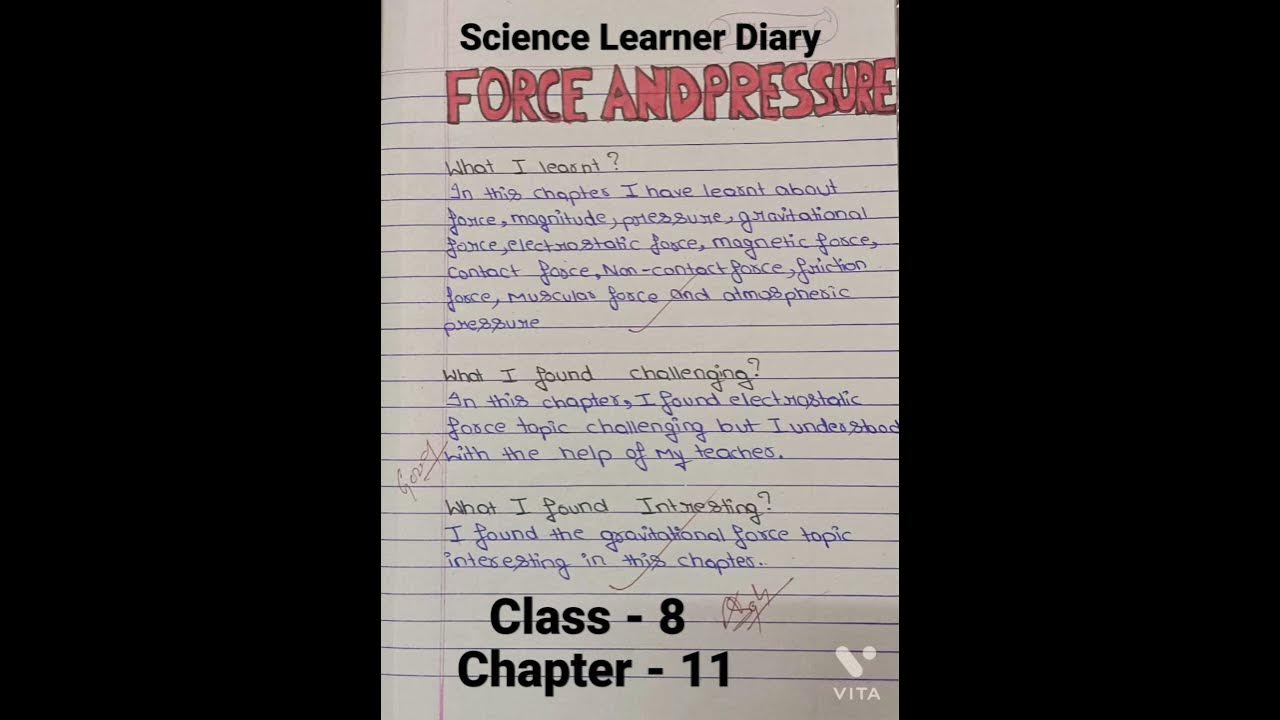 Science Learner Diary
FORCE AND PRESSURE
What I learnt?
In this chapter I have learnt about
force, magnitude, pressure, gravitational
force, electrostatic force, magnetic force,
contact force, Non-contact force, friction
force, Muscular force and atmospheric
pressure
What I found challenging?
In this chapter, I found electrostatic
force topic challenging but I understood
with the help of My teacher.
Good
What I found Intresting?
I found the gravitational force topic
interesting in this chapter..
Class - 8
Chapter - 11
VITA